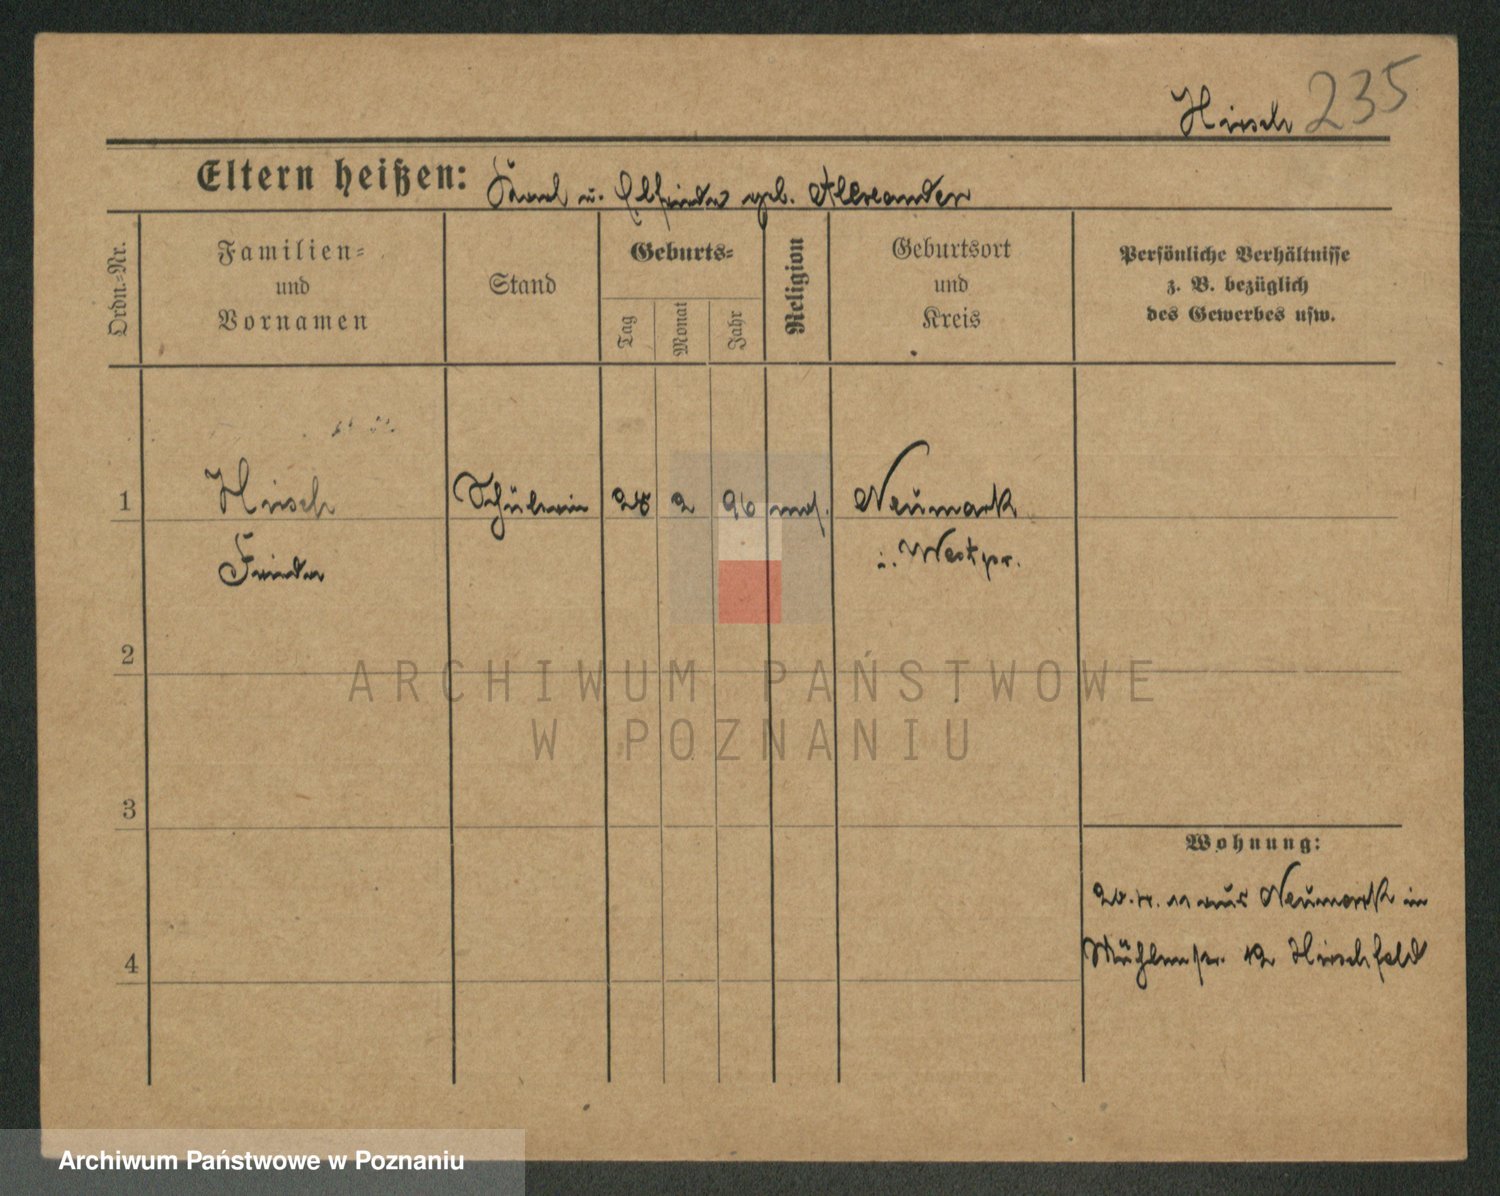 Hirsch 235
Eltern heißen: Karl u. Elfrieda geb. Alexander
Ordn.-Nr.
Familien-
und
Vornamen
Stand
Geburts-
Tag
Monat
Jahr
Religion
Geburtsort
und
Kreis
Persönliche Verhältnisse
z. B. bezüglich
des Gewerbes usw.
1 Hirsch Schülerin 28 2 96 mos. Neumark
Frieda i. Westpr.
2
3
4
Wohnung:
20. 4. 11 aus Neumark in
Mühlenstr. 12 Hirschfeld
ARCHIWUM PAŃSTWOWE
W POZNANIU
Archiwum Państwowe w Poznaniu